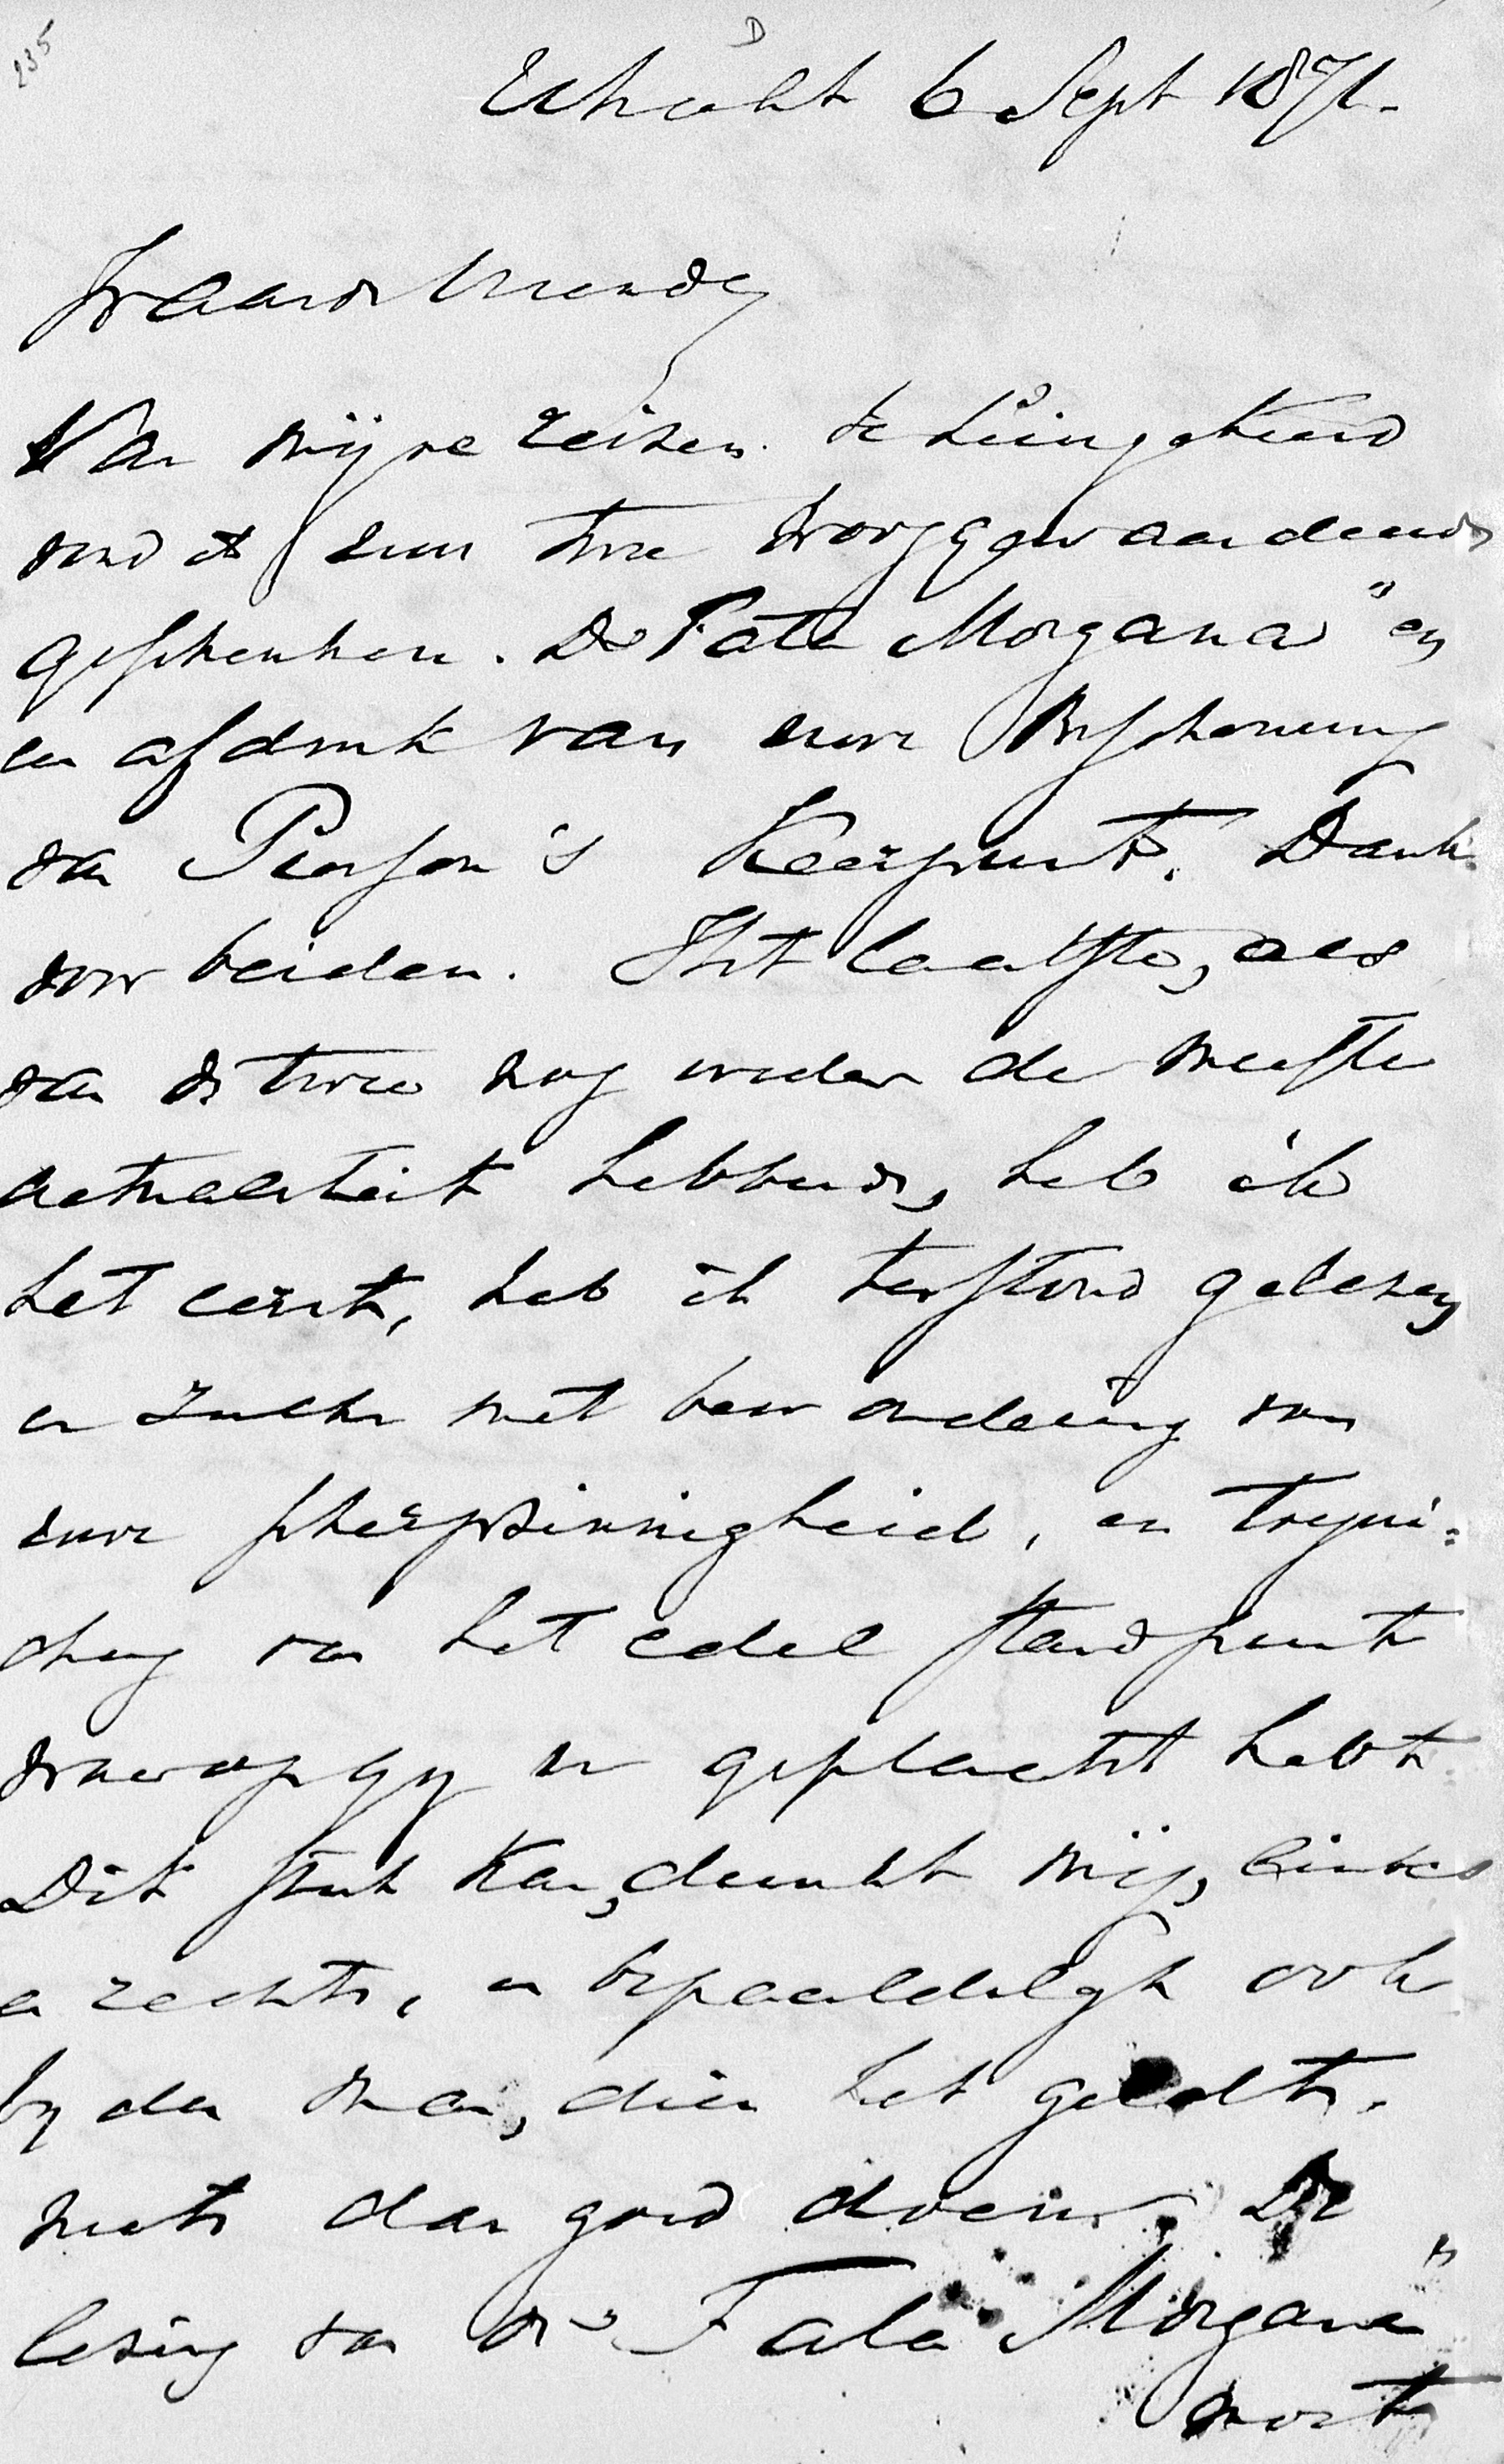 235
D
Utrecht 6 Sept 1871.
Waarde Vriend,
Van mijne reizen te huis gekeerd
vond ik uwe twee hooggewaardeerde
geschenken. De „Fata Morgana" en
een afdruk van uwe Beschouwing
van Pierson's Keerpunt. Dank
voor beiden. Het laatste, als
van de twee nog weder de meeste
actualiteit hebbende, heb ik
het eerst, heb ik terstond gelezen
en zulks met bewondering van
uwe scherpzinnigheid, en toejui=
ching van het edel standpunt
waarop gy u geplaatst hebt.
Dit stuk kan, dunkt mij, links
en rechts, en bepaaldelyk ook
by den man, dien het geldt,
niets dan goed doen. De
lezing van de „Fata Morgana"
moet